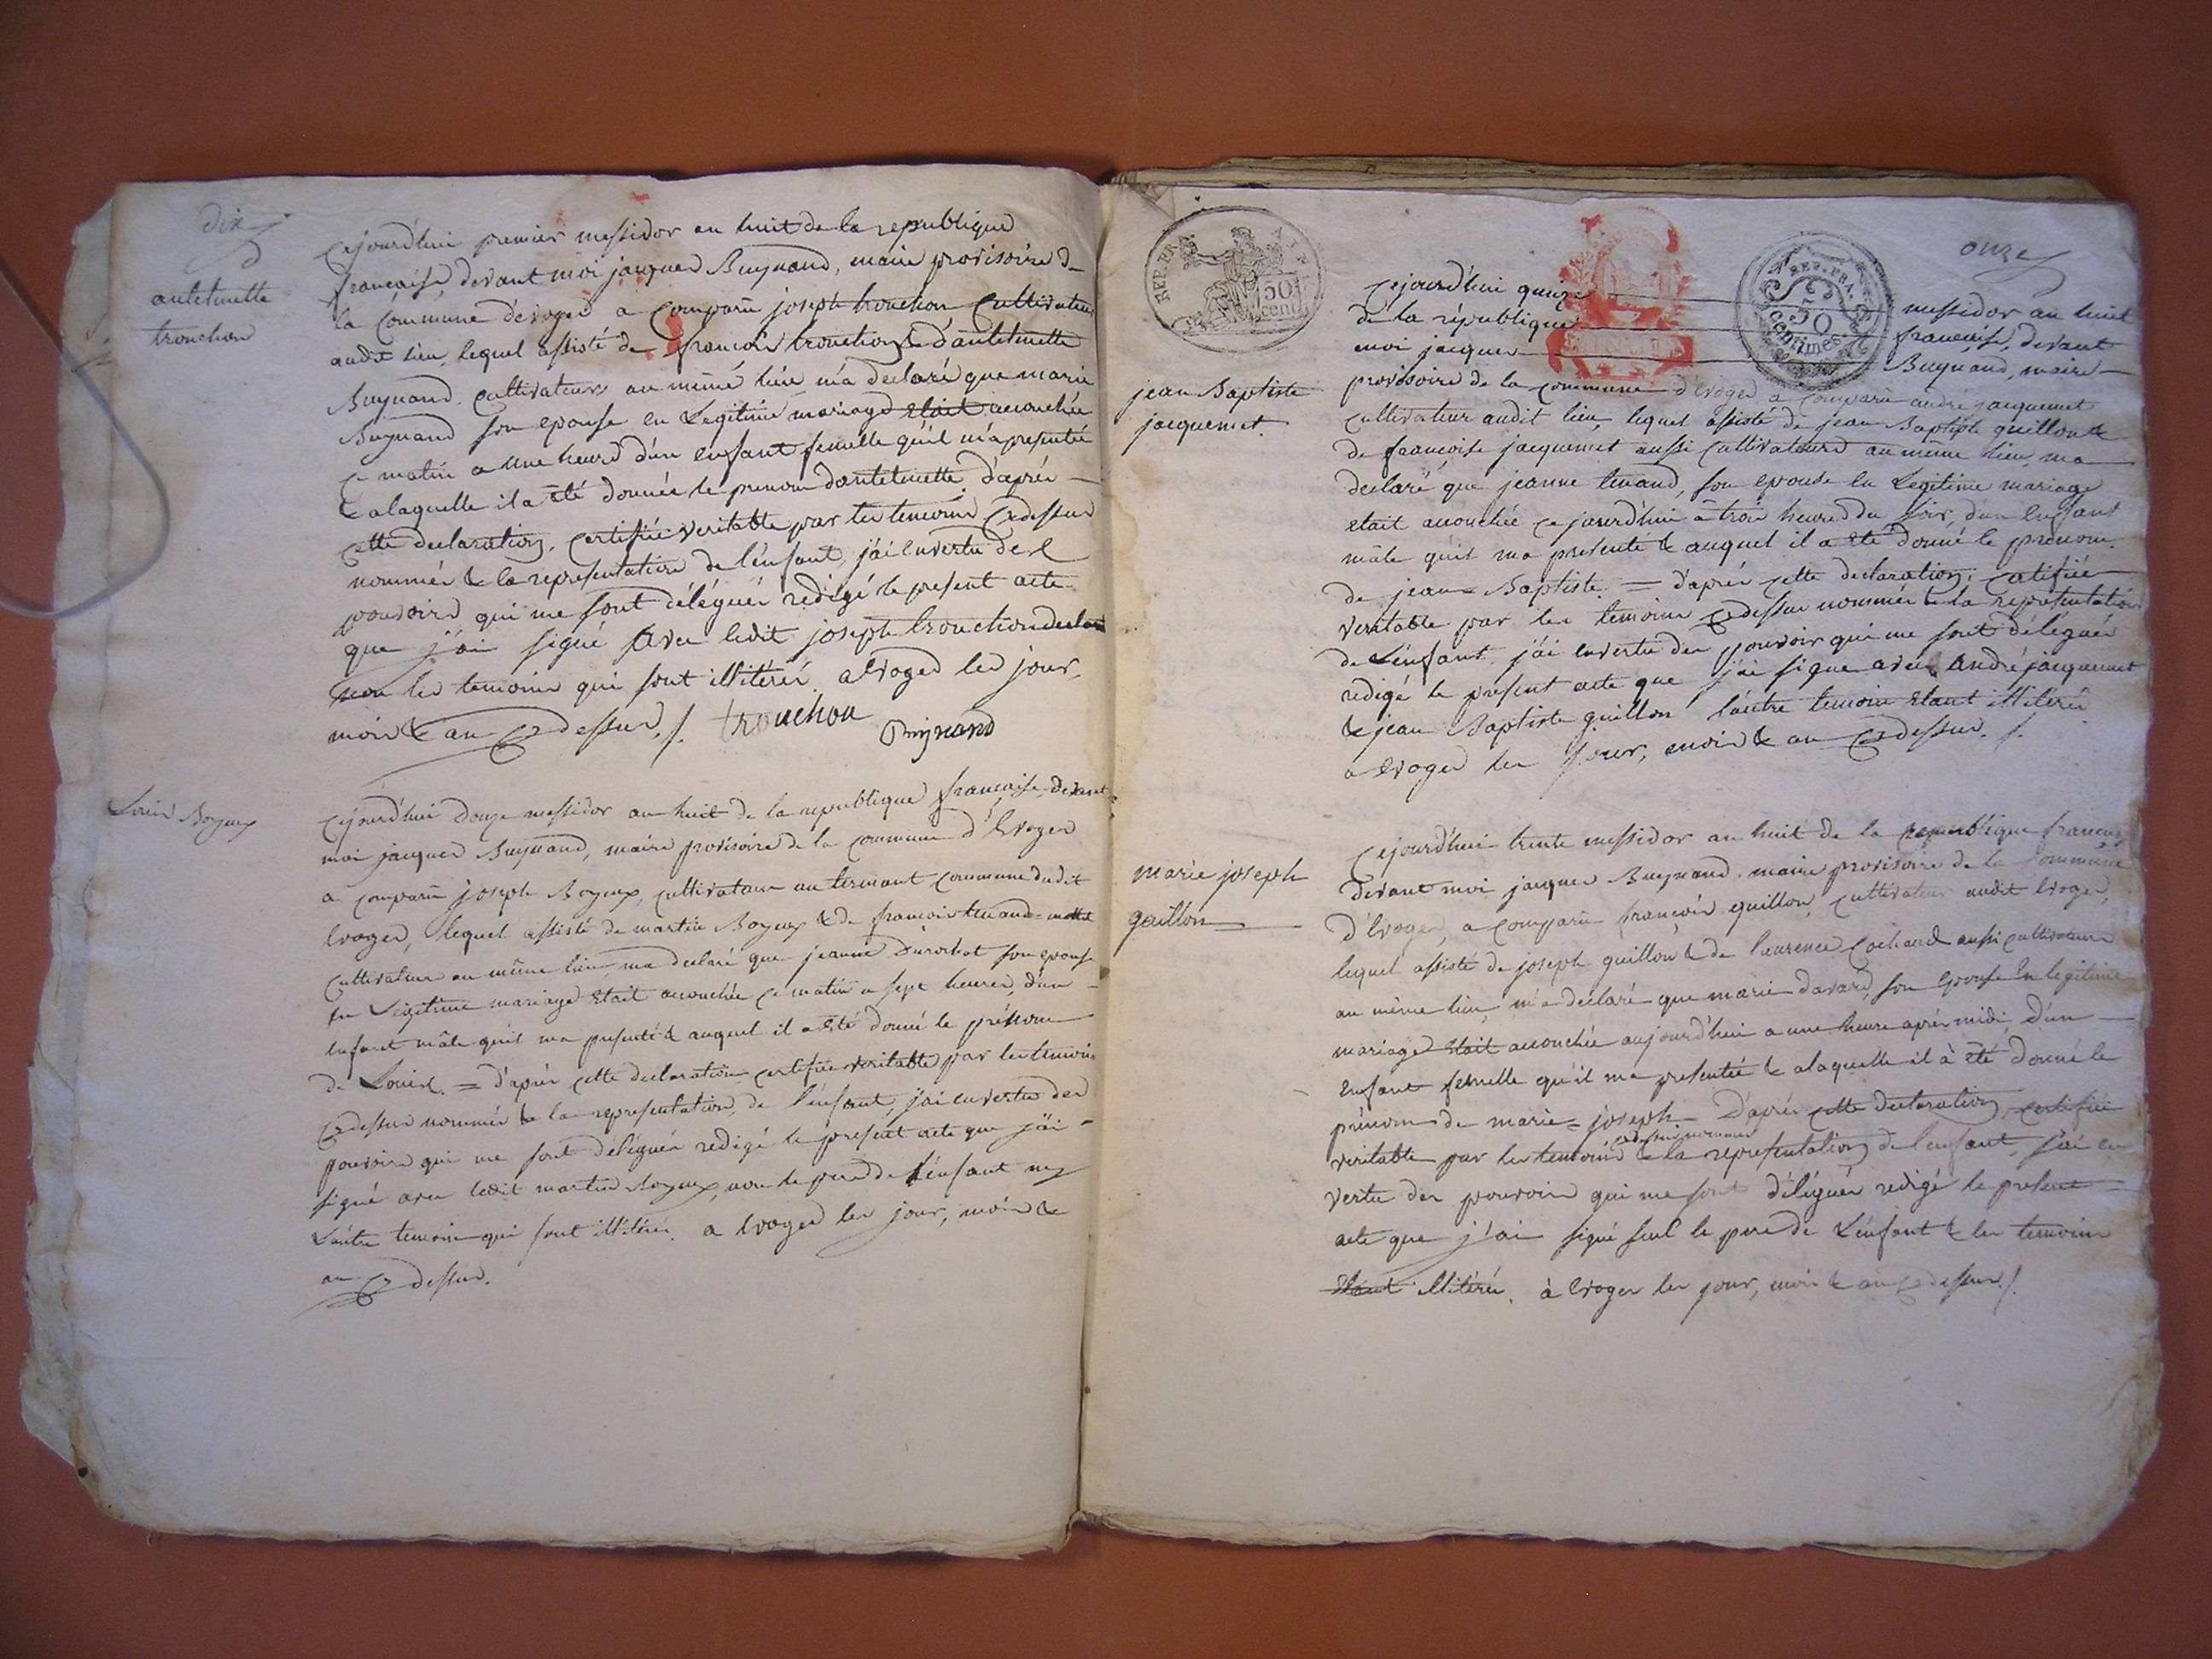 dix
antelmette
tronchon
Cejourd'hui premier messidor an huit de la republique
francaise, devant moi jacques Buynand, maire provisoire de
la Commune d'evoges a comparu joseph tronchon Cultivateur
audit lieu, lequel assisté de francois tronchon & d'antelmette
Buynand cultivateurs au même lieu m'a declaré que marie
Buynand son epouse en Legitime mariage etait accouchée
ce matin a une heure d'un enfant femelle qu'il m'a presentée
& alaquelle il a été donnée le prenom dantelmette. d'après
cette declaration, certifiée veritable par les temoins cydessus
nommés & la representation de l'enfant, j'ai envertu des
pouvoirs qui me sont délégués redigé le present acte
que j'ai signé avec ledit joseph tronchon declarant
non les temoins qui sont illiterés a Evoges les jour,
mois & an cydessus ./. tronchon
Buynand
Louis Boyeux
Cejourd'hui douze messidor an huit de la republique française, devant
moi jacques Buynand, maire provisoire de la commune d'Evoges
a comparu joseph Boyeux, cultivateur au termant commune dudit
Evoges, lequel assisté de martin Boyeux & de francois tenand
cultivateurs au même lieu, ma declaré que jeanne Durochat son epouse
en Legitime mariage etait accouchée ce matin a sept heures, d'un
enfant mâle qu'il ma presenté & auquel il a été donné le prénom
de Louis. = d'après cette declaration certifiée veritable par les temoins
cydessus nommés & la representation, de l'enfant, j'ai envertu des
pouvoirs qui me sont délégués redigé le present acte que j'ai
signé avec ledit martin Boyeux, non le pere de l'enfant ny
L'autre temoin qui sont illiterés. a Evoges les jour, mois &
an cydessus.
onze
REP. FRA.
50
cent.
REP. FRA.
50
centimes
jean Baptiste
jacquemet.
Cejourd'hui quinze messidor an huit
de la république francaise, devant
moi jacques Buynand, maire
provisoire de la commune d'Evoges a comparu andré jacquemet
cultivateur audit lieu, lequel assisté de jean Baptiste guillon &
de françoise jacquemet aussi cultivateurs au même lieu, ma
declaré que jeanne tenand, son epouse en Legitime mariage
etait accouchée cejourd'hui a trois heures du soir, d'un enfant
mâle qu'il ma presenté & auquel il a été donné le prénom
de jean = Baptiste = d'après cette declaration, certifiée
veritable par les temoins cydessus nommés & la representation
de L'enfant, j'ai envertu des pouvoir qui me sont délégués
redigé le present acte que j'ai signé avec André jacquemet
& jean Baptiste guillon l'autre temoin etant illiteré
a Evoges les jour, mois & an cydessus. /.
marie joseph
guillon
Cejourd'hui trente messidor an huit de la republique française
devant moi jacques Buynand maire provisoire de la Commune
d'Evoges, a comparu françois guillon, cultivateur audit Evoges,
lequel assisté de joseph guillon & de laurence Cochaud aussi cultivateurs
au même lieu, m'a declaré que marie davard, son Epouse en legitime
mariage etait accouchée aujourd'hui a une heure après midi, d'un
enfant femelle qu'il ma presentée & alaquelle il à été donné le
prénom de marie = joseph D'après cette declaration certifiée
cydessus nommés
veritable par les temoins & la representation de l'enfant, j'ai en
vertu des pouvoirs qui me sont délégués redigé le present
acte que j'ai signé seul le pere de L'enfant & les temoins
étant illiterés. à Evoges les jour, mois & an cydessus /.